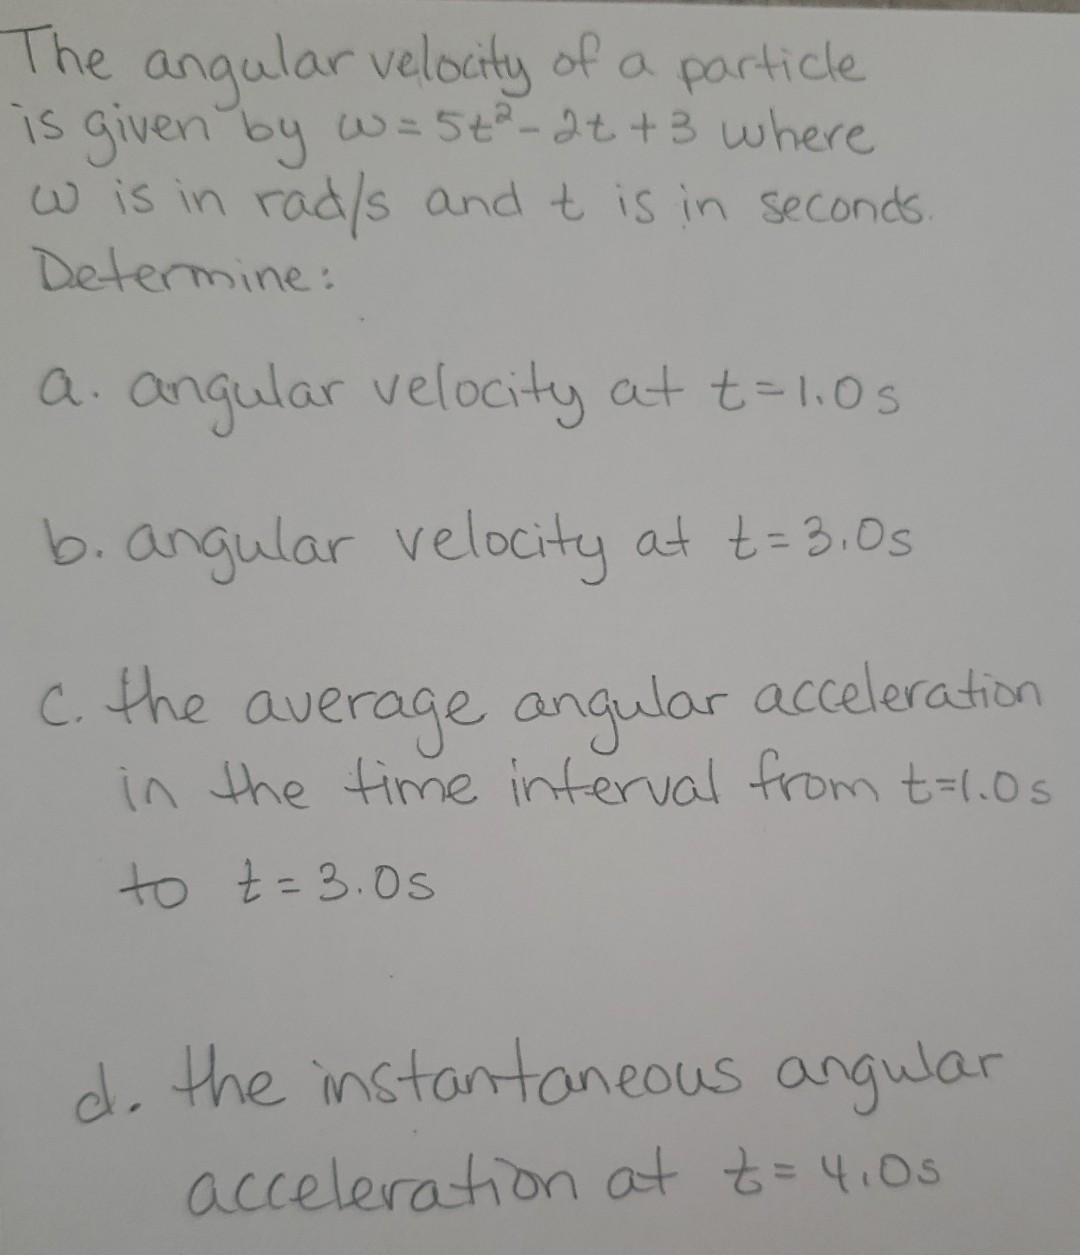 The angular velocity of a particle
is given by ω = 5t² - 2t + 3 where
ω is in rad/s and t is in seconds.
Determine:
a. angular velocity at t=1.0s
b. angular velocity at t=3.0s
c. the average angular acceleration
in the time interval from t=1.0s
to t=3.0s
d. the instantaneous angular
acceleration at t=4.0s